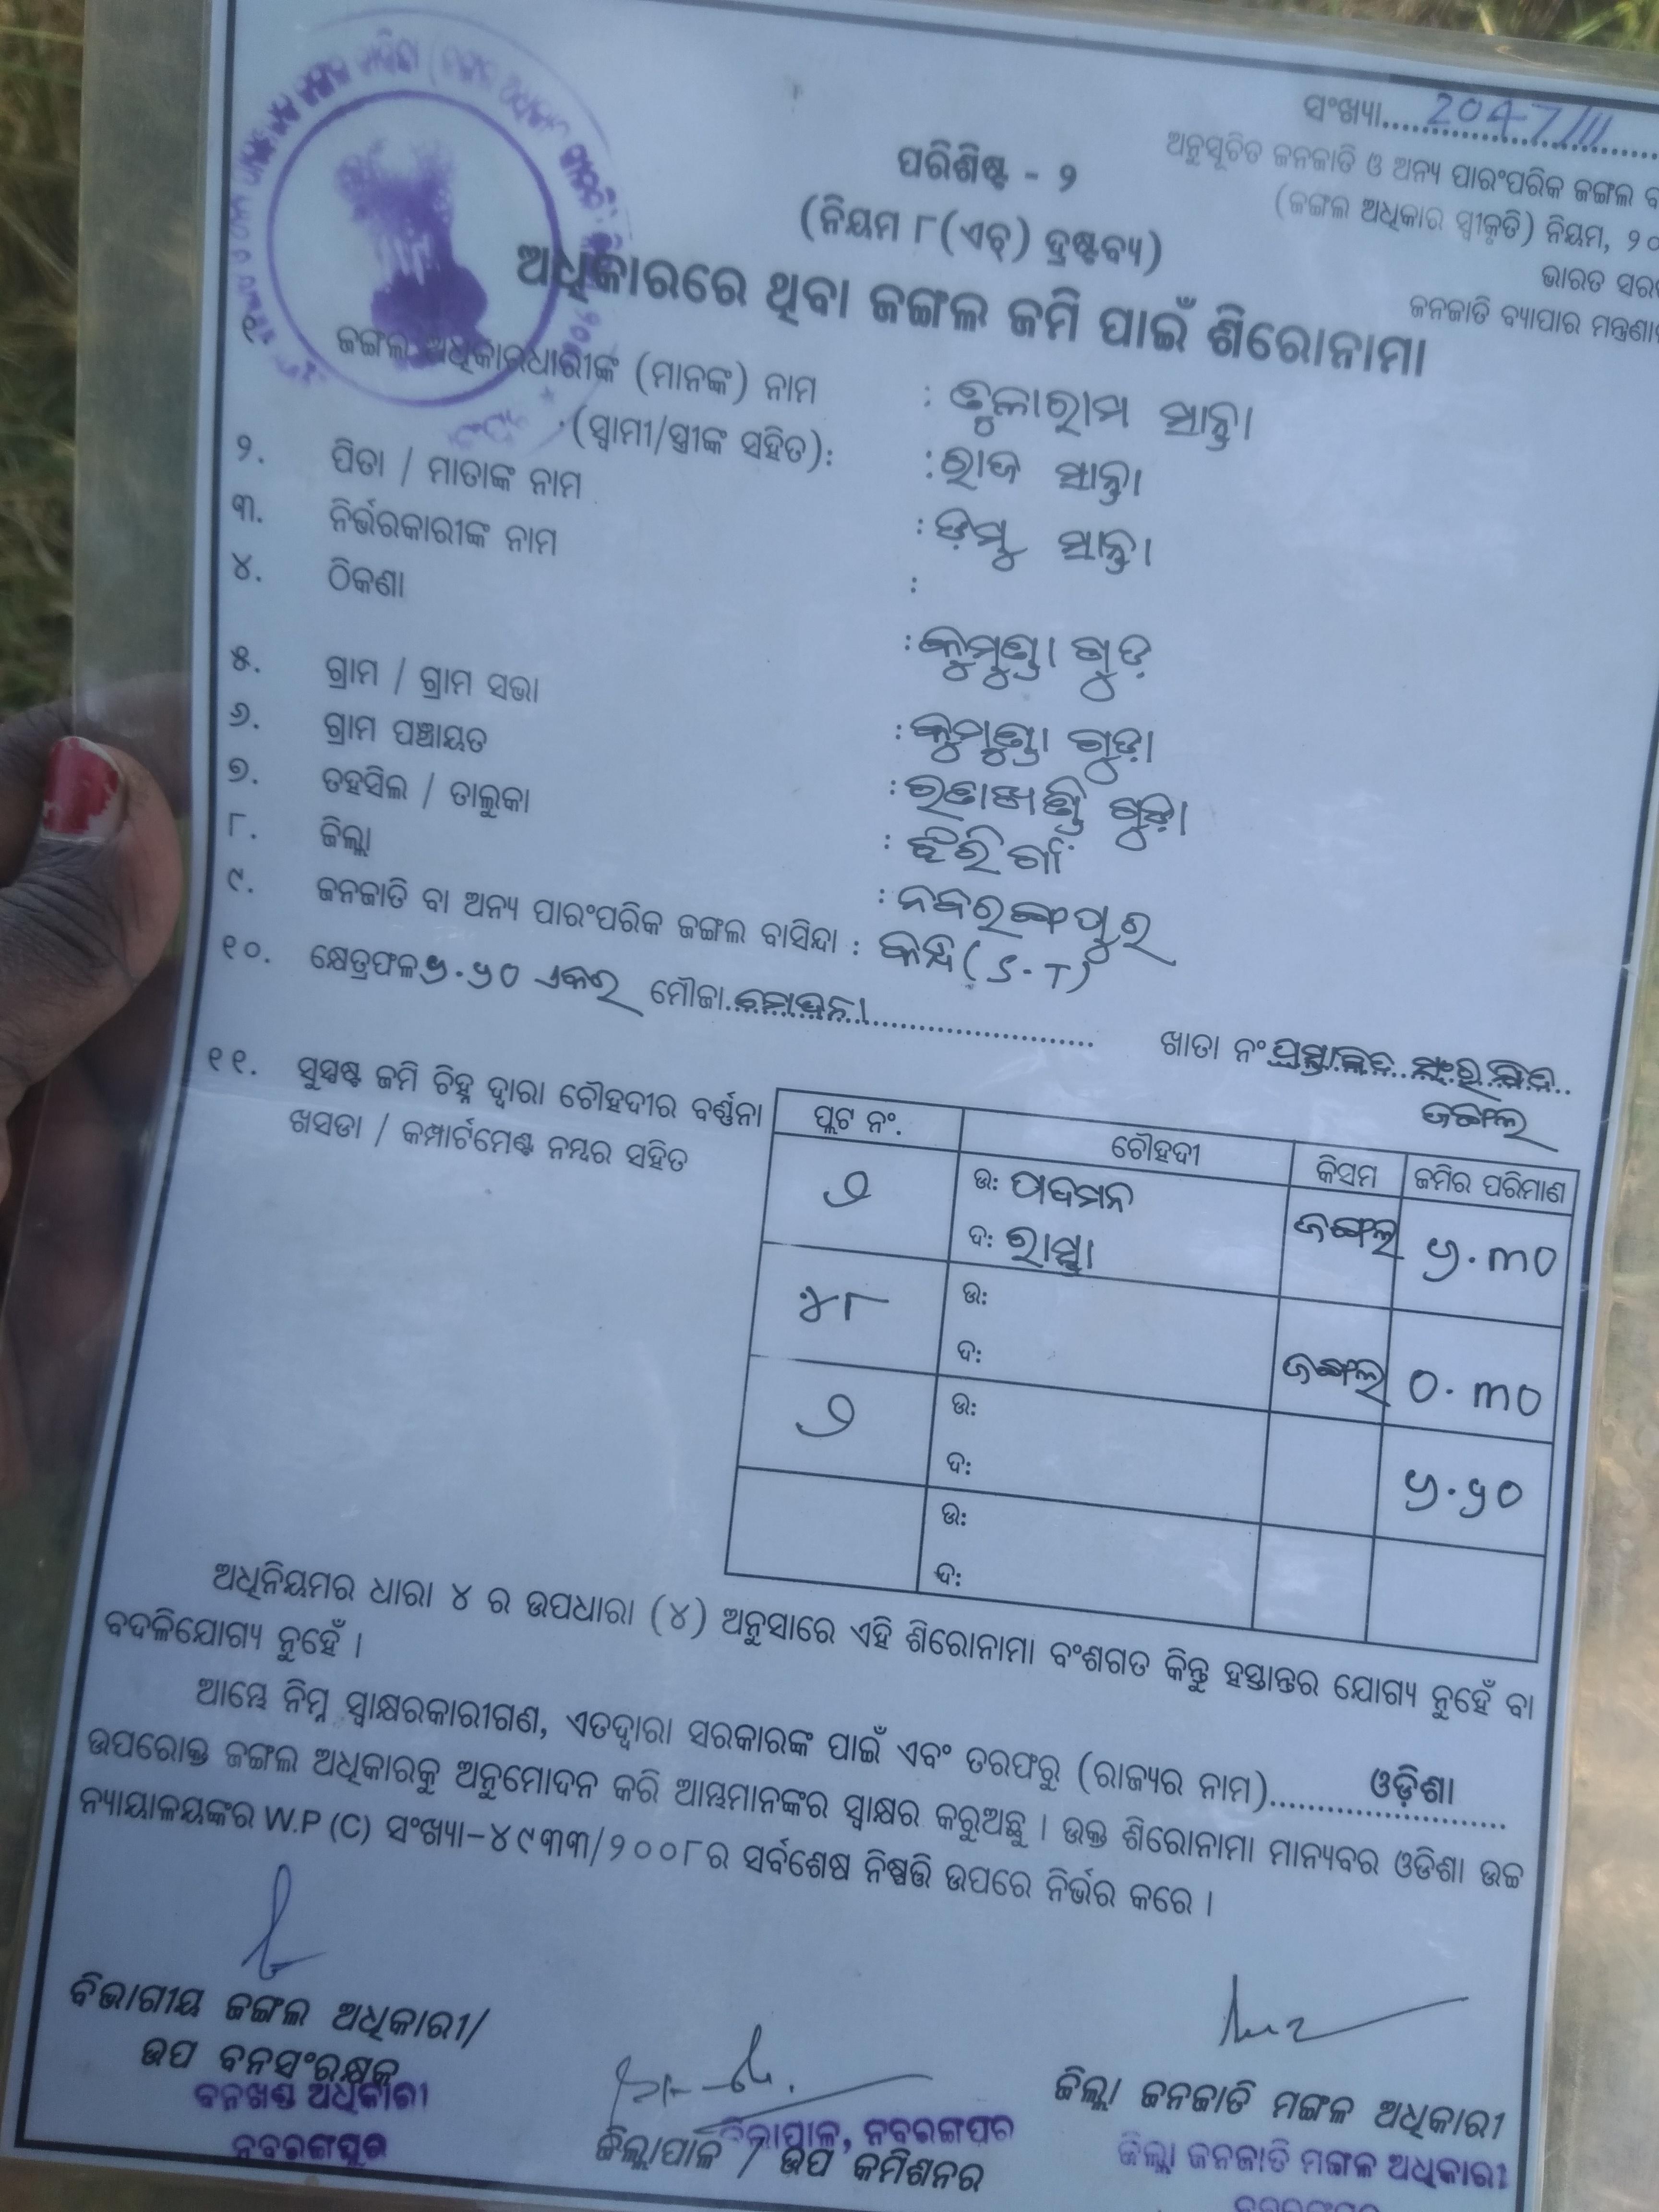 ସଂଖ୍ୟା.....2047/11
ଅନୁସୂଚିତ ଜନଜାତି ଓ ଅନ୍ୟ ପାରଂପରିକ ଜଙ୍ଗଲ
(ଜଙ୍ଗଲ ଅଧିକାର ସ୍ୱୀକୃତି) ନିୟମ,
ଭାରତ
ଜନଜାତି ବ୍ୟାପାର
ପରିଶିଷ୍ଟ - ୨
(ନିୟମ ୮(ଏଚ୍) ଦ୍ରଷ୍ଟବ୍ୟ)
ଅଧିକାରରେ ଥିବା ଜଙ୍ଗଲ ଜମି ପାଇଁ ଶିରୋନାମା
୧. ଜଙ୍ଗଲ ଅଧିକାରଧାରୀଙ୍କ (ମାନଙ୍କ) ନାମ : ତୁଳାରାମ ସାନ୍ତା
(ସ୍ୱାମୀ/ସ୍ତ୍ରୀଙ୍କ ସହିତ): : ରାଜ ସାନ୍ତା
୨. ପିତା / ମାତାଙ୍କ ନାମ : ଡମ୍ବୁ ସାନ୍ତା
୩. ନିର୍ଭରକାରୀଙ୍କ ନାମ :
୪. ଠିକଣା
୫. ଗ୍ରାମ / ଗ୍ରାମ ସଭା
୬. ଗ୍ରାମ ପଞ୍ଚାୟତ
୭. ତହସିଲ / ତାଲୁକା : ଝରିଗାଁ
୮. ଜିଲ୍ଲା : ନବରଙ୍ଗପୁର
୯. ଜନଜାତି ବା ଅନ୍ୟ ପାରଂପରିକ ଜଙ୍ଗଲ ବାସିନ୍ଦା : କନ୍ଧ (S.T)
୧୦. କ୍ଷେତ୍ରଫଳ ୬.୬୦ ଏକର ମୌଜା ଖାତା ନଂ
ଜଙ୍ଗଲ
୧୧. ସୁସ୍ପଷ୍ଟ ଜମି ଚିହ୍ନ ଦ୍ୱାରା ଚୌହଦୀର ବର୍ଣ୍ଣନା
ଖସଡା / କମ୍ପାର୍ଟମେଣ୍ଟ ନମ୍ବର ସହିତ
ପ୍ଲଟ ନଂ. ଚୌହଦୀ କିସମ ଜମିର ପରିମାଣ
୬ ଉ: ପଦମନ ଜଙ୍ଗଲ ୬.୩୦
ଦ: ରାସ୍ତା
୪୮ ଉ: ଜଙ୍ଗଲ ୦.୩୦
ଦ:
୨ ଉ: ୬.୬୦
ଦ:
ଉ:
ଦ:
ଅଧିନିୟମର ଧାରା ୪ ର ଉପଧାରା (୪) ଅନୁସାରେ ଏହି ଶିରୋନାମା ବଂଶଗତ କିନ୍ତୁ ହସ୍ତାନ୍ତର ଯୋଗ୍ୟ ନୁହେଁ ବା
ବଦଳିଯୋଗ୍ୟ ନୁହେଁ ।
ଆମ୍ଭେ ନିମ୍ନ ସ୍ୱାକ୍ଷରକାରୀଗଣ, ଏତଦ୍ୱାରା ସରକାରଙ୍କ ପାଇଁ ଏବଂ ତରଫରୁ (ରାଜ୍ୟର ନାମ)..........ଓଡ଼ିଶା
ଉପରୋକ୍ତ ଜଙ୍ଗଲ ଅଧିକାରକୁ ଅନୁମୋଦନ କରି ଆମ୍ଭମାନଙ୍କର ସ୍ୱାକ୍ଷର କରୁଅଛୁ । ଉକ୍ତ ଶିରୋନାମା ମାନ୍ୟବର ଓଡିଶା ଉଚ୍ଚ
ନ୍ୟାୟାଳୟଙ୍କର W.P (C) ସଂଖ୍ୟା-୪୯୩୩/୨୦୦୮ର ସର୍ବଶେଷ ନିଷ୍ପତ୍ତି ଉପରେ ନିର୍ଭର କରେ ।
ବିଭାଗୀୟ ଜଙ୍ଗଲ ଅଧିକାରୀ/
ଉପ ବନସଂରକ୍ଷକ
ବନଖଣ୍ଡ ଅଧିକାରୀ
ନବରଙ୍ଗପୁର
ଜିଲ୍ଲାପାଳ, ନବରଙ୍ଗପୁର
ଜିଲ୍ଲାପାଳ / ଉପ କମିଶନର
ଜିଲ୍ଲା ଜନଜାତି ମଙ୍ଗଳ ଅଧିକାରୀ
ଜିଲ୍ଲା ଜନଜାତି ମଙ୍ଗଳ ଅଧିକାରୀ